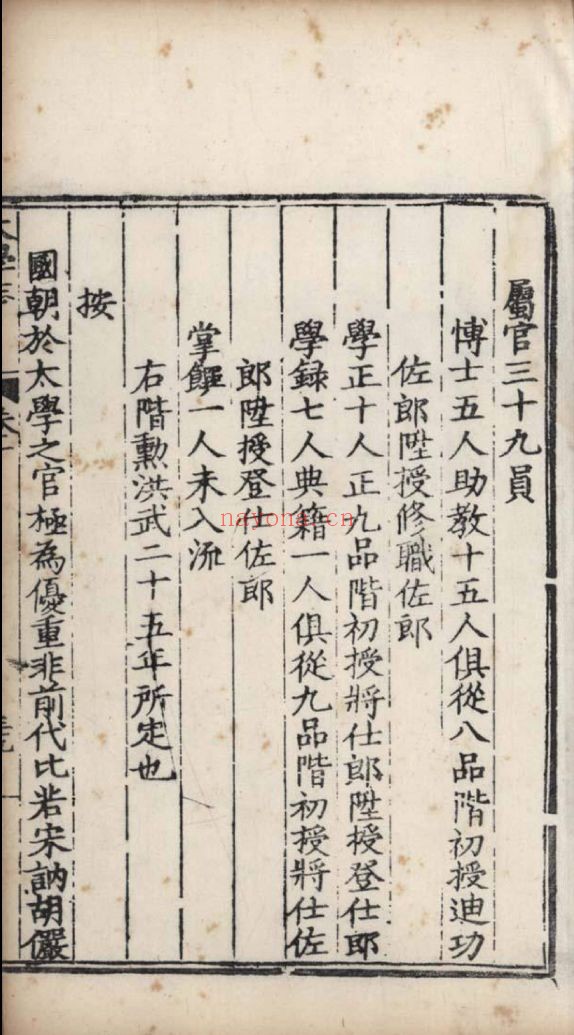 屬官三十九員
博士五人助教十五人俱從八品階初授迪功
佐郎陞授修職佐郎
學正十人正九品階初授將仕郎陞授登仕郎
學録七人典籍一人俱從九品階初授將仕佐
郎陞授登仕佐郎
掌饌一人未入流
右階勳洪武二十五年所定也
按
國朝於太學之官極為優重非前代比若宋訥胡儼
nayona.cn